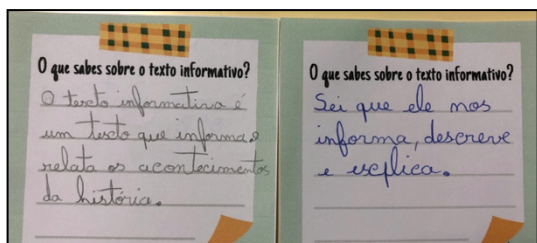 O que sabes sobre o texto informativo?
O texcto informativa é
um texcto que informa e
relata os acontecimentos
da história.
O que sabes sobre o texto informativo?
Sei que ele nos
informa, descreve
e escplica.